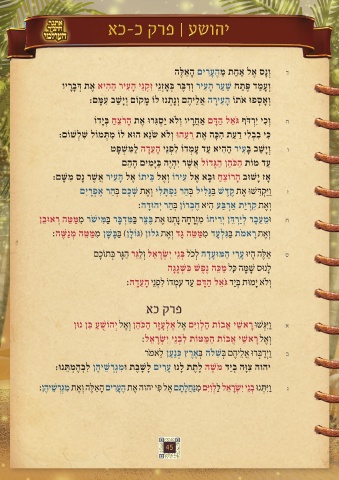 יהושע | פרק כ-כא
אתגר
התנ"ך
העולמי
ד וְנָס אֶל אַחַת מֵהֶעָרִים הָאֵלֶּה
וְעָמַד פֶּתַח שַׁעַר הָעִיר וְדִבֶּר בְּאָזְנֵי זִקְנֵי הָעִיר הַהִיא אֶת דְּבָרָיו
וְאָסְפוּ אֹתוֹ הָעִירָה אֲלֵיהֶם וְנָתְנוּ לוֹ מָקוֹם וְיָשַׁב עִמָּם:
ה וְכִי יִרְדֹּף גֹּאֵל הַדָּם אַחֲרָיו וְלֹא יַסְגִּרוּ אֶת הָרֹצֵחַ בְּיָדוֹ
כִּי בִבְלִי דַעַת הִכָּה אֶת רֵעֵהוּ וְלֹא שֹׂנֵא הוּא לוֹ מִתְּמוֹל שִׁלְשׁוֹם:
ו וְיָשַׁב בָּעִיר הַהִיא עַד עָמְדוֹ לִפְנֵי הָעֵדָה לַמִּשְׁפָּט
עַד מוֹת הַכֹּהֵן הַגָּדוֹל אֲשֶׁר יִהְיֶה בַּיָּמִים הָהֵם
אָז יָשׁוּב הָרוֹצֵחַ וּבָא אֶל עִירוֹ וְאֶל בֵּיתוֹ אֶל הָעִיר אֲשֶׁר נָס מִשָּׁם:
ז וַיַּקְדִּשׁוּ אֶת קֶדֶשׁ בַּגָּלִיל בְּהַר נַפְתָּלִי וְאֶת שְׁכֶם בְּהַר אֶפְרָיִם
וְאֶת קִרְיַת אַרְבַּע הִיא חֶבְרוֹן בְּהַר יְהוּדָה:
ח וּמֵעֵבֶר לְיַרְדֵּן יְרִיחוֹ מִזְרָחָה נָתְנוּ אֶת בֶּצֶר בַּמִּדְבָּר בַּמִּישֹׁר מִמַּטֵּה רְאוּבֵן
וְאֶת רָאמֹת בַּגִּלְעָד מִמַּטֵּה גָד וְאֶת גלון (גּוֹלָן) בַּבָּשָׁן מִמַּטֵּה מְנַשֶּׁה:
ט אֵלֶּה הָיוּ עָרֵי הַמּוּעָדָה לְכֹל בְּנֵי יִשְׂרָאֵל וְלַגֵּר הַגָּר בְּתוֹכָם
לָנוּס שָׁמָּה כָּל מַכֵּה נֶפֶשׁ בִּשְׁגָגָה
וְלֹא יָמוּת בְּיַד גֹּאֵל הַדָּם עַד עָמְדוֹ לִפְנֵי הָעֵדָה:
פרק כא
א וַיִּגְּשׁוּ רָאשֵׁי אֲבוֹת הַלְוִיִּם אֶל אֶלְעָזָר הַכֹּהֵן וְאֶל יְהוֹשֻׁעַ בִּן נוּן
וְאֶל רָאשֵׁי אֲבוֹת הַמַּטּוֹת לִבְנֵי יִשְׂרָאֵל:
ב וַיְדַבְּרוּ אֲלֵיהֶם בְּשִׁלֹה בְּאֶרֶץ כְּנַעַן לֵאמֹר
יהוה צִוָּה בְיַד מֹשֶׁה לָתֶת לָנוּ עָרִים לָשָׁבֶת וּמִגְרְשֵׁיהֶן לִבְהֶמְתֵּנוּ:
ג וַיִּתְּנוּ בְנֵי יִשְׂרָאֵל לַלְוִיִּם מִנַּחֲלָתָם אֶל פִּי יהוה אֶת הֶעָרִים הָאֵלֶּה וְאֶת מִגְרְשֵׁיהֶן:
45